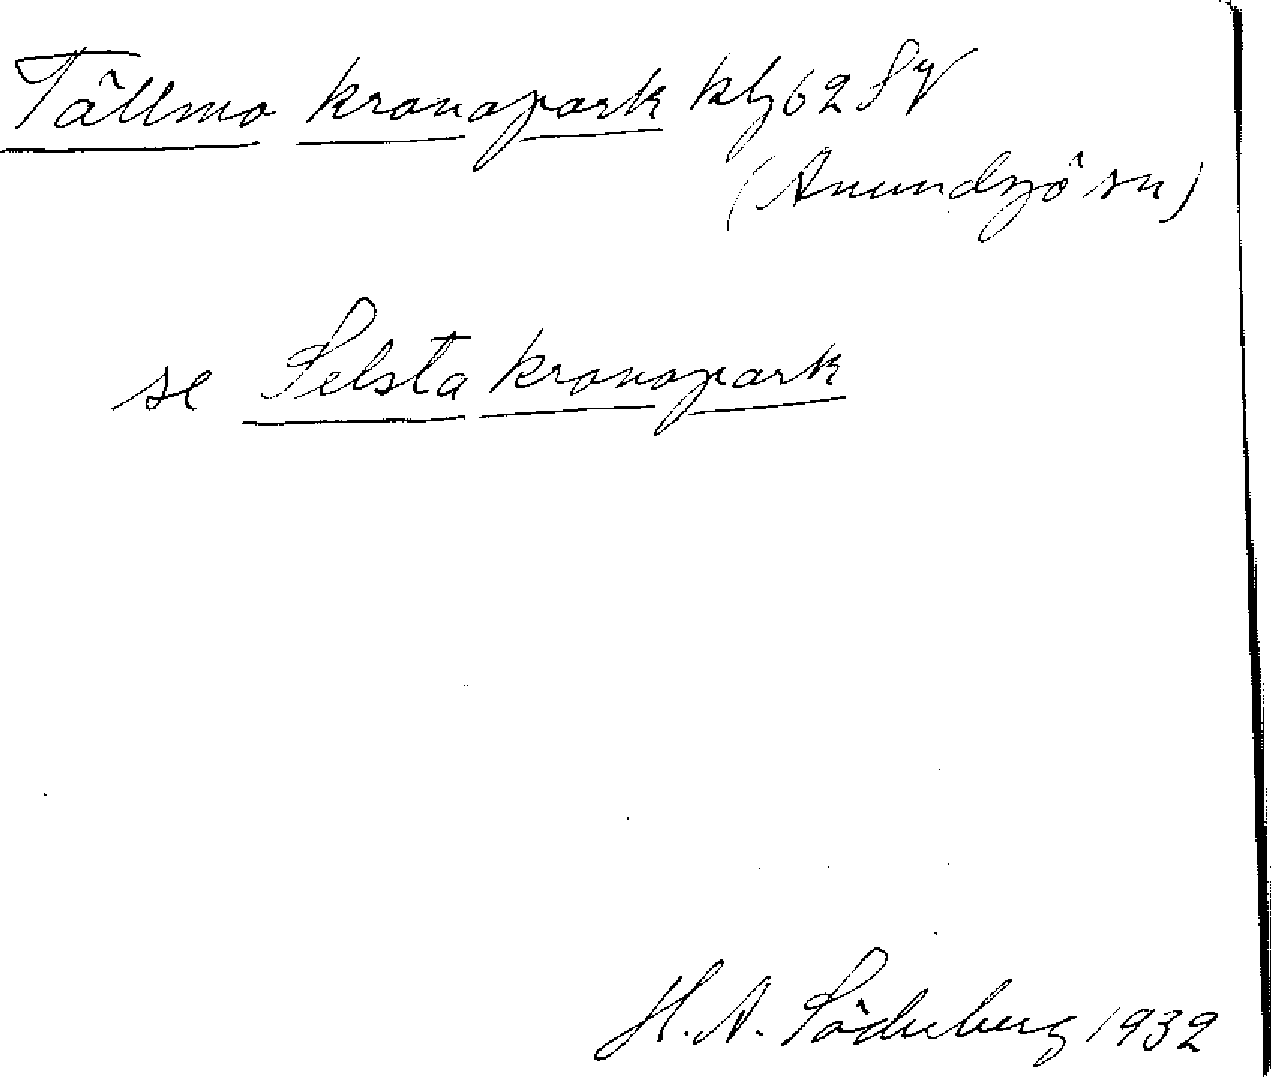 Tällmo kronopark kbl 62 SV
(Anundsjö sn)
se Selsta kronopark
H. A. Söderberg 1932